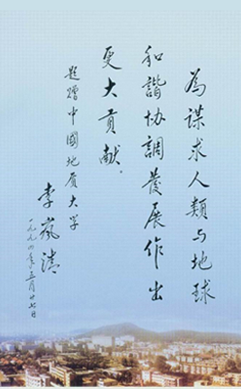 為謀求人類与地球
和諧協調發展作出
更大貢献.
題贈中國地质大学
李嵐清
一九九四年三月廿七日